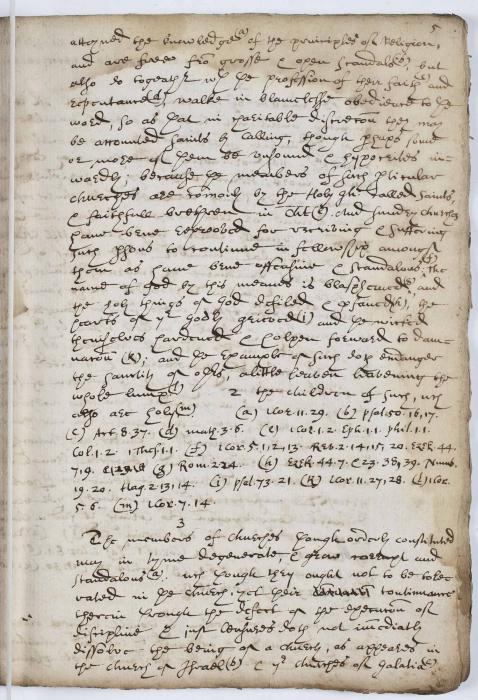 5
attayned the knowledge of the principles of Religion,
and are free fro grosse & open scandals, but
also do togeather wth ye profession of their faith and
repentance (d) walke in blamelesse obedience to ye
word, so as yat in charitable discretion they may
be accounted saints by calling, though phaps some
or more of them be unsound & hypocrites in-
wardly; because ye members of such pticular
churches are comonly by the holy ghost called saints,
& faithfull brethren in Christ (e). And sundry churches
have bene reproved for receiving & suffering
such psons to continue in fellowship amongst
them as have bene offensive & scandalous (f): the
name of god by this meanes is blasphemed (g) and
the holy things of God defiled & phaned (h), the
hearts of ye godly grieved (i) and the wicked
themselves hardened & holpen forward to dam-
nation (k); and ye example of such doth endanger
the sanctity of others, a little leaven leavening the
whole lump (l) 2 the children of such, who
also are holy (m) (a) 1 Cor. 1. 29. (b) psal. 50. 16, 17.
(c) Act. 8. 37. (d) math. 3. 6. (e) 1 Cor. 1. 2. Eph. 1. 1. phil. 1. 1.
Col. 1. 2. 1 Thes. 1. 1. (f) 1 Cor. 5. 1, 2, 13. Rev. 2. 14, 15, 20. Ezek. 44.
7, 9. (g) Rom. 2. 24. (h) Ezek. 44. 7. & 23. 38, 39. Numb.
19. 20. Hag. 2. 13, 14. (i) psal. 73. 21. (k) 1 Cor. 11. 27, 28. (l) 1 Cor.
5. 6. (m) 1 Cor. 7. 14.
3
The members of churches though orderly constituted
may in tyme degenerate, & grow corrupt and
scandalous (a). wch though they ought not to be tole-
rated in ye church, yet their continuance
therein through the defect of the execution of
discipline & just censures doth not imediatly
dissolve the being of a church, as appeares in
the church of Israel (b) & ye churches of Galatia